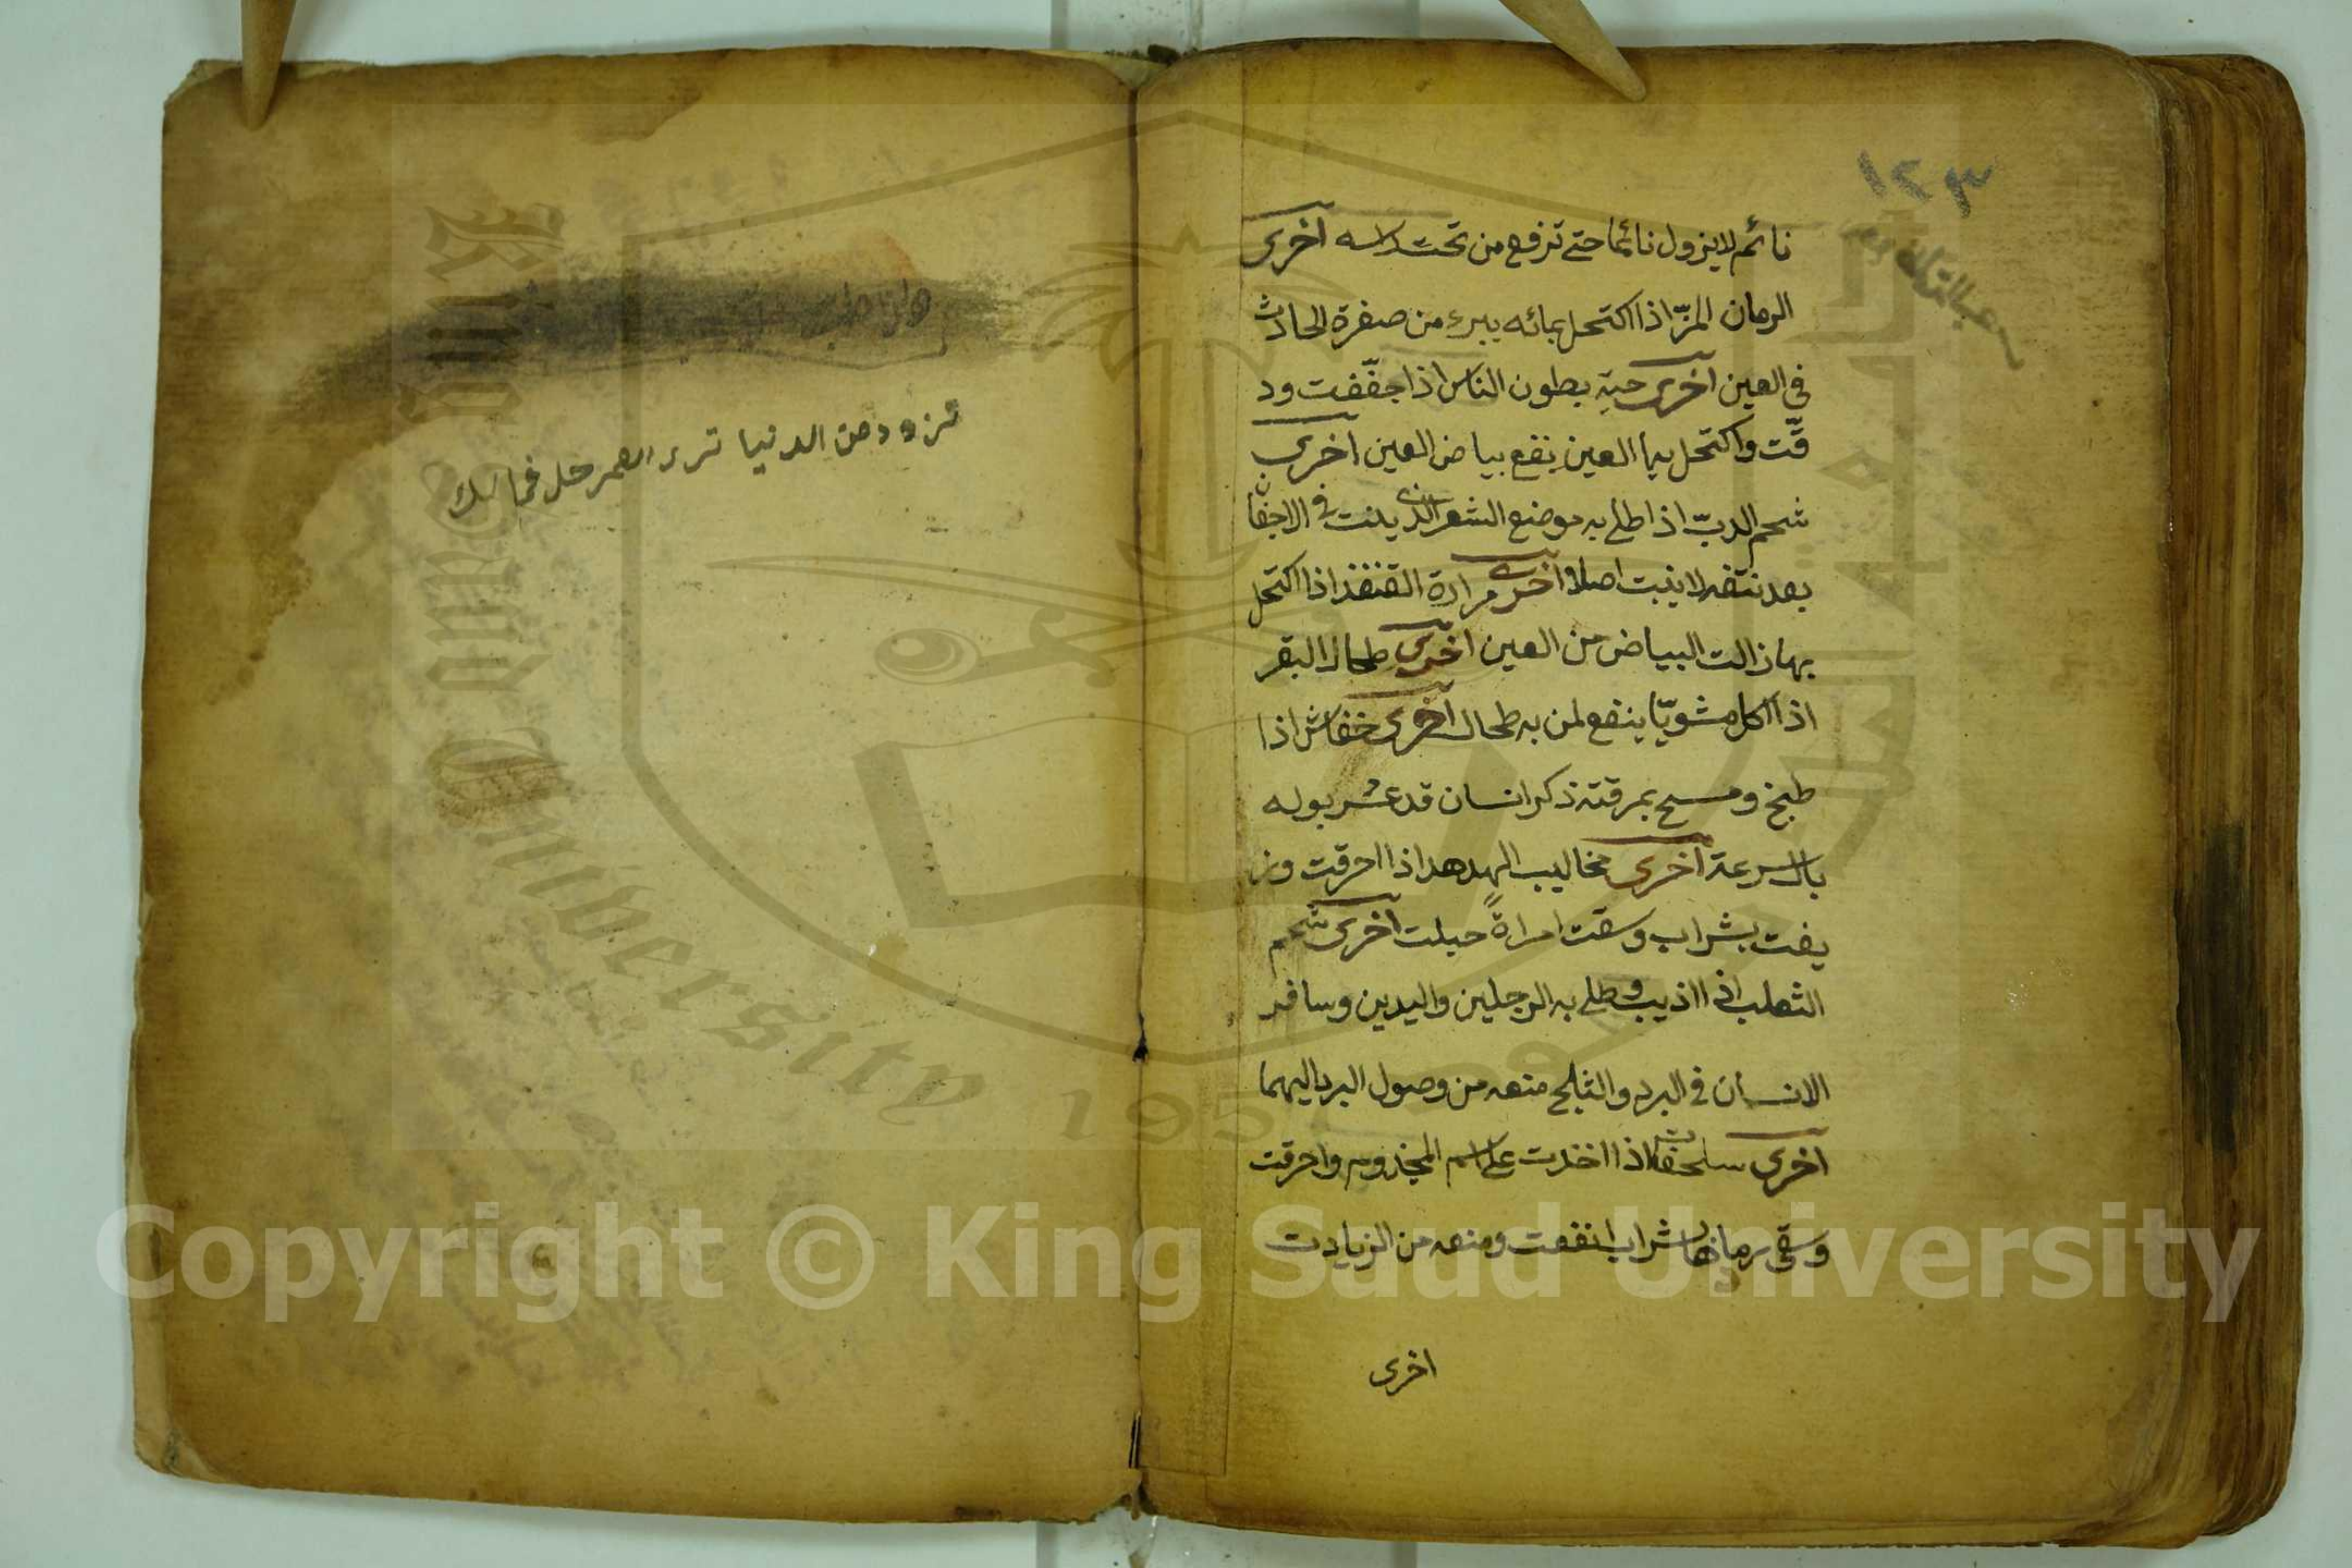 نائم لا يزول نائما حتى ترفع من تحت راسه اخرى
الرمان المزّ اذا اكتحل بمائه يبرء من صفرة الحادث
في العين اخرى حية بطون الناس اذا جفّفت ود
قّت واكتحل بها العين ينفع بياض العين اخرى
شحم الدبّ اذا طلى به موضع الشعر الذي ينبت في الاجفان
بعد نتفه لا ينبت اصلا اخرى مرارة القنفذ اذا اكتحل
بها زالت البياض من العين اخرى طحال البقر
اذا اكل مشويّا ينفع لمن به طحال اخرى خفاش اذا
طبخ ومسح بمرقته ذكر انسان قد عسر بوله
بالسرعة اخرى مخاليب الهدهد اذا احرقت وز
يفت بشراب وسقت امراةً حبلت اخرى شحم
الثعلب اذا اذيب وطلى به الرجلين واليدين وسافر
الانسان في البرد والثلج منعه من وصول البرد اليهما
اخرى سلحفات اذا اخذت على اسم المجذوم واحرقت
وسقى رمادها بشراب نفعت ومنعه من الزيادت
اخرى
تزود من الدنيا
Copyright © King Saud University
King Saud University 195